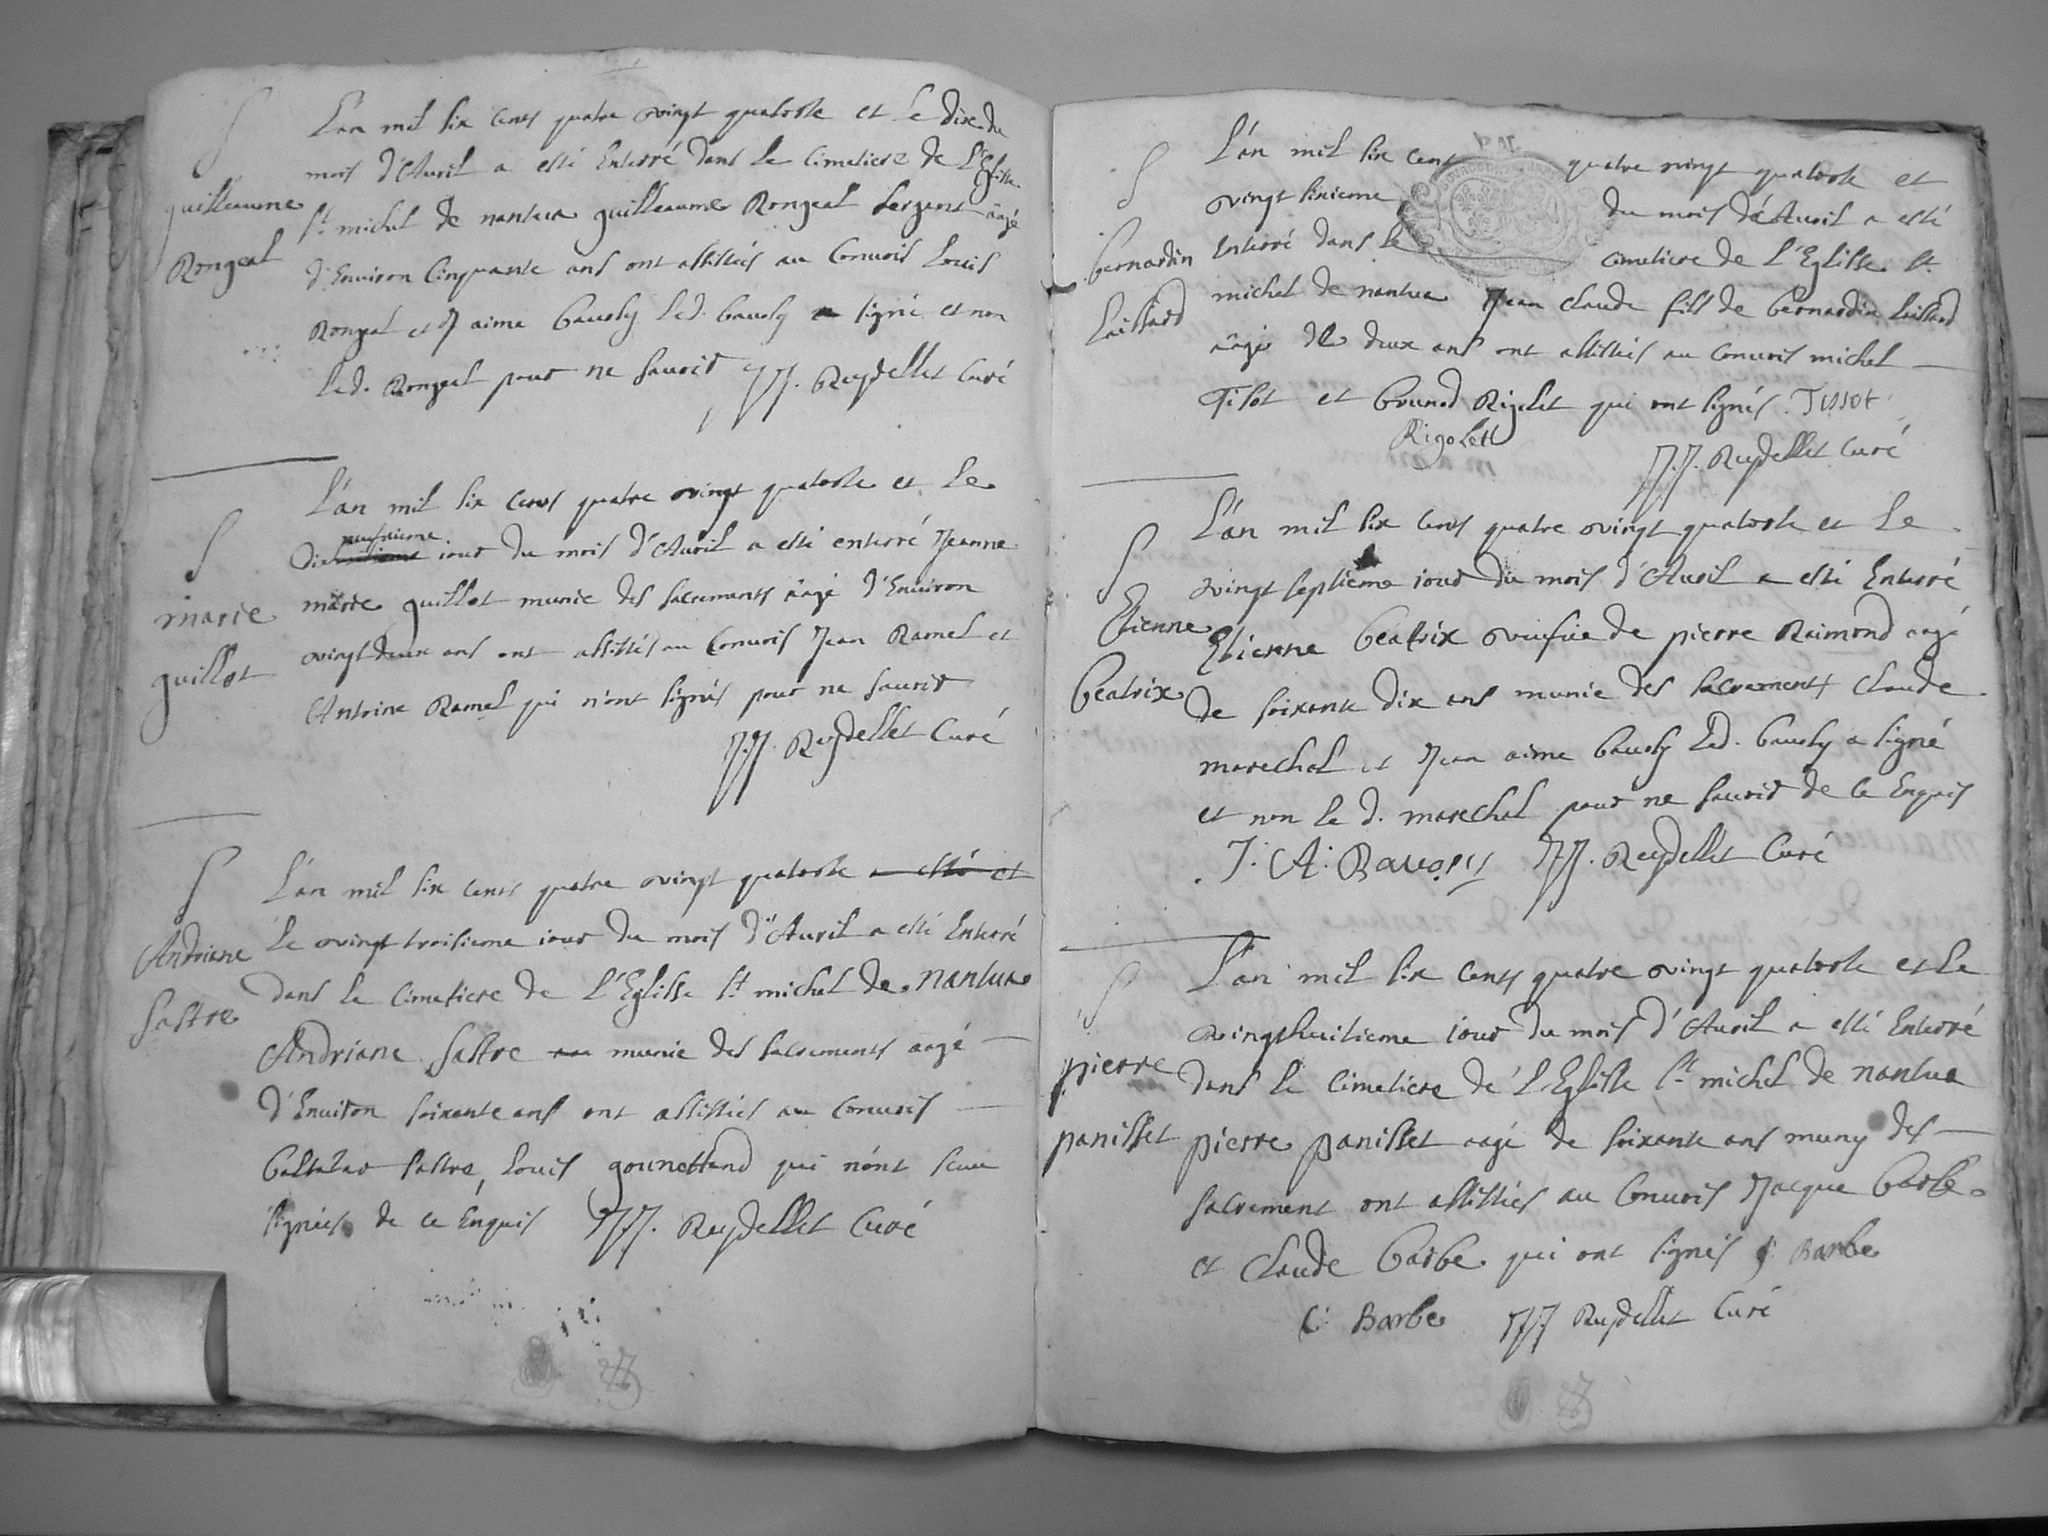 S
guilleaume
Rongeat
L'an mil six cents quatre vingt quatorse et le dix du
mois d'Auril a esté Enterré dans le Cimetiere de L'Eglise
St michel de nantua guilleaume Rongeat sergent aagé
d'Enuiron Cinquante ans ont assistés au Conuois Louis
Rongeat et J aime bauoly led. bauoly a signé et non
led. Rongeat pour ne sauoir JJ. Reydellet Curé
S
marie
guillot
L'an mil six cents quatre vingt quatorse et Le
neufuieme
dix iour du mois d'Auril a esté enterré Jeanne
marie guillot munie des sacrements aagé d'Enuiron
vingt deux ans ont assistés au Conuois Jean Ramel et
Antoine Ramel qui n'ont signés pour ne sauoir
J.J. Reydellet Curé
S
Andriane
Sastre
L'an mil six cents quatre vingt quatorse a esté et
Le vingt troisieme iour du mois d'Auril a esté Enterré
dans le Cimetiere de L'Eglisse St michel de nantua
Andriane Sastre munie des sacrements aagé
d'Enuiron soixante ans ont assistés au Conuois
baltasar sastre, Louis gounettand qui n'ont sceu
signées de ce Enquis JJ. Reydellet Curé
S
bernardin
Laissard
L'an mil six cent quatre vingt quatorse et
vingt sixieme du mois d'Auril a esté
Enterré dans le cimetiere de L'Eglisse St
michel de nantua Jean Claude fils de bernardin Laissard
aagé de deux ans ont assistés au Conuois michel
Tisot et brunod Rigolet qui ont signés. Tissot
Rigolett
J.J. Reydellet Curé
S
Etienne
beatrix
L'an mil six cents quatre vingt quatorse et Le
vingt septieme iour du mois d'Auril a esté Enterré
Etienne beatrix veufue de pierre Raimond aagé
de soixante dix ans munie des sacrements Claude
marechal et Jean aime bauoly led. bauoly a signé
et non le d. marechal pour ne sauoir de ce Enquis
J. A. Bauoly JJ. Reydellet Curé
S
pierre
panisset
L'an mil six cents quatre vingt quatorse et Le
vingthuitieme iour du mois d'Auril a esté Enterré
dans le Cimetiere de L'Eglisse St michel de nantua
pierre panisset aagé de soixante ans muny des
sacrement ont assistées au Conuois Jacque barbe
et Claude barbe qui ont signés j: Barbe
C: Barbe JJ Reydellet Curé